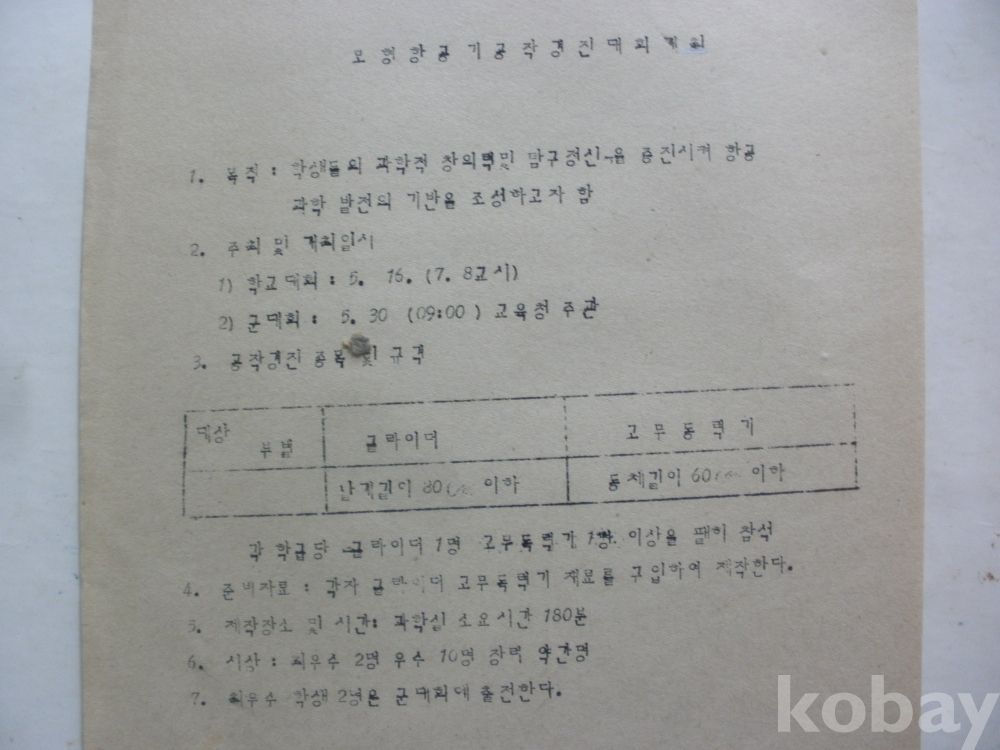 모형항공기공작경진대회계획
1. 목적 : 학생들의 과학적 창의력및 탐구정신을 증진시켜 항공
과학 발전의 기반을 조성하고자 함
2. 주최 및 개최일시
1) 학교대회 : 5. 16. (7. 8교시)
2) 군대회 : 5. 30 (09:00 ) 교육청 주관
3. 공작경진 종목 및 규격
대상 부별 글라이더 고무동력기
날개길이 80cm 이하 동체길이 60cm 이하
각 학급당 글라이더 1명 고무동력기 1명 이상을 참석
4. 준비자료 : 각자 글라이더 고무동력기 재료를 구입하여 제작한다.
5. 제작장소 및 시간: 과학실 소요시간 180분
6. 시상 : 최우수 2명 우수 10명 장려 약간명
7. 최우수 학생 2명은 군대회에 출전한다.
kobay